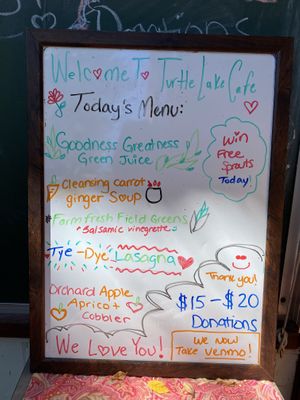 Donations
Welcome To Turtle Lake Cafe
Today's Menu:
Goodness Greatness
Green Juice
Win
Free
Sprouts
Today!
Cleansing carrot
ginger Soup
Farm fresh Field Greens
Balsamic vinegrette
Tye-Dye Lasagna
Thank you!
Orchard Apple
Aprico+
Cobbler
$15-$20
Donations
We Love You!
We now
Take venmo!